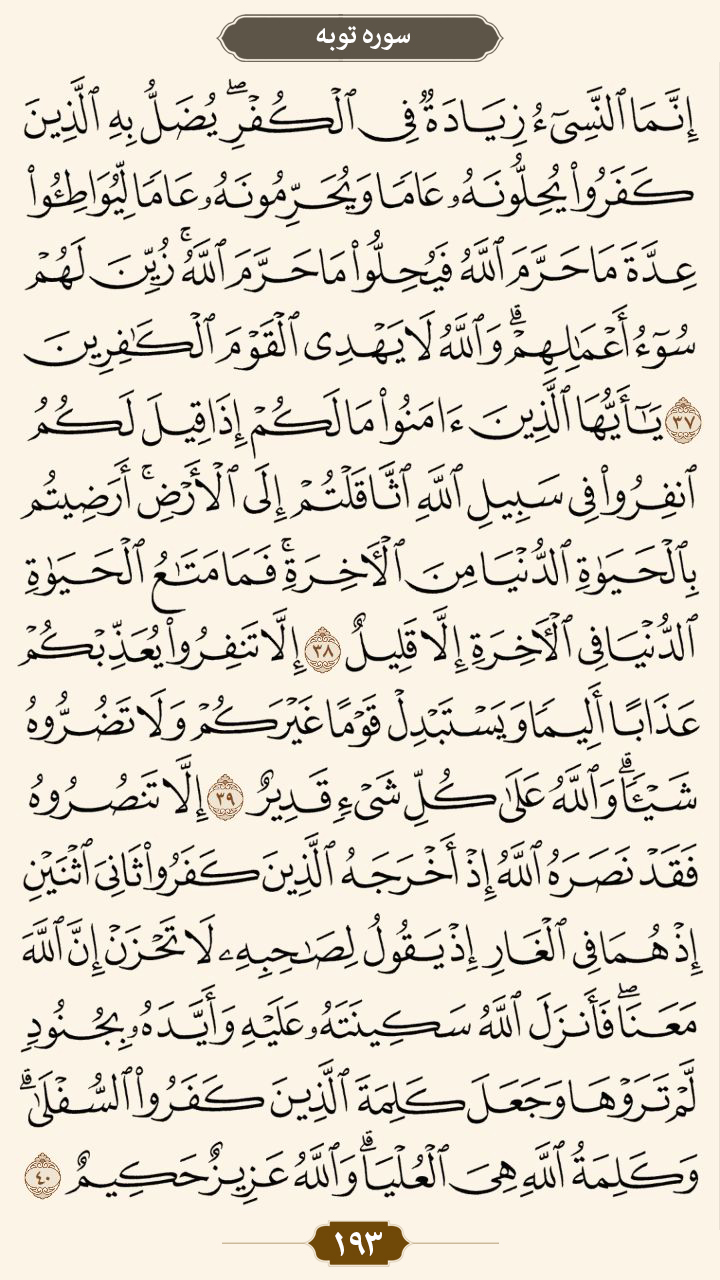 سوره توبه
إِنَّمَا ٱلنَّسِىٓءُ زِيَادَةٌ فِى ٱلْكُفْرِ ۖ يُضَلُّ بِهِ ٱلَّذِينَ
كَفَرُوا۟ يُحِلُّونَهُۥ عَامًا وَيُحَرِّمُونَهُۥ عَامًا لِّيُوَاطِـُٔوا۟
عِدَّةَ مَا حَرَّمَ ٱللَّهُ فَيُحِلُّوا۟ مَا حَرَّمَ ٱللَّهُ ۚ زُيِّنَ لَهُمْ
سُوٓءُ أَعْمَـٰلِهِمْ ۗ وَٱللَّهُ لَا يَهْدِى ٱلْقَوْمَ ٱلْكَـٰفِرِينَ
٣٧ يَـٰٓأَيُّهَا ٱلَّذِينَ ءَامَنُوا۟ مَا لَكُمْ إِذَا قِيلَ لَكُمُ
ٱنفِرُوا۟ فِى سَبِيلِ ٱللَّهِ ٱثَّاقَلْتُمْ إِلَى ٱلْأَرْضِ ۚ أَرَضِيتُم
بِٱلْحَيَوٰةِ ٱلدُّنْيَا مِنَ ٱلْـَٔاخِرَةِ ۚ فَمَا مَتَـٰعُ ٱلْحَيَوٰةِ
ٱلدُّنْيَا فِى ٱلْـَٔاخِرَةِ إِلَّا قَلِيلٌ ٣٨ إِلَّا تَنفِرُوا۟ يُعَذِّبْكُمْ
عَذَابًا أَلِيمًا وَيَسْتَبْدِلْ قَوْمًا غَيْرَكُمْ وَلَا تَضُرُّوهُ
شَيْـًٔا ۗ وَٱللَّهُ عَلَىٰ كُلِّ شَىْءٍ قَدِيرٌ ٣٩ إِلَّا تَنصُرُوهُ
فَقَدْ نَصَرَهُ ٱللَّهُ إِذْ أَخْرَجَهُ ٱلَّذِينَ كَفَرُوا۟ ثَانِىَ ٱثْنَيْنِ
إِذْ هُمَا فِى ٱلْغَارِ إِذْ يَقُولُ لِصَـٰحِبِهِۦ لَا تَحْزَنْ إِنَّ ٱللَّهَ
مَعَنَا ۖ فَأَنزَلَ ٱللَّهُ سَكِينَتَهُۥ عَلَيْهِ وَأَيَّدَهُۥ بِجُنُودٍ
لَّمْ تَرَوْهَا وَجَعَلَ كَلِمَةَ ٱلَّذِينَ كَفَرُوا۟ ٱلسُّفْلَىٰ ۗ
وَكَلِمَةُ ٱللَّهِ هِىَ ٱلْعُلْيَا ۗ وَٱللَّهُ عَزِيزٌ حَكِيمٌ ٤٠
١٩٣